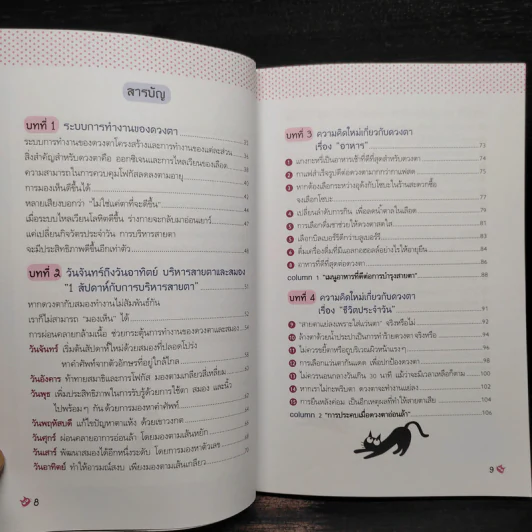 สารบัญ
บทที่ 1 ระบบการทำงานของดวงตา
ระบบการทำงานของดวงตาโครงสร้างและการทำงานของแต่ละส่วน
สิ่งสำคัญสำหรับดวงตาคือ ออกซิเจนและการไหลเวียนของเลือด
ความสามารถในการควบคุมโฟกัสลดลงตามอายุ
การมองเห็นดีขึ้นได้
หลายเสียงบอกว่า "ไม่ใช่แค่ตาที่จะดีขึ้น"
เมื่อระบบไหลเวียนโลหิตดีขึ้น ร่างกายจะกลับมาอ่อนเยาว์
แค่เปลี่ยนกิจวัตรประจำวัน การบริหารสายตา
จะมีประสิทธิภาพดีขึ้นอีกเท่าตัว
บทที่ 2 วันจันทร์ถึงวันอาทิตย์ บริหารสายตาและสมอง
"1 สัปดาห์กับการบริหารสายตา"
หากดวงตากับสมองทำงานไม่สัมพันธ์กัน
เราก็ไม่สามารถ "มองเห็น" ได้
การผ่อนคลายกล้ามเนื้อ ช่วยกระตุ้นการทำงานของดวงตาและสมอง
วันจันทร์ เริ่มต้นสัปดาห์ใหม่ด้วยสมองที่ปลอดโปร่ง
หาคำศัพท์จากตัวอักษรที่อยู่ใกล้ไกล
วันอังคาร ท้าทายสมาธิและการโฟกัส มองตามเกลียวสี่เหลี่ยม
วันพุธ เพิ่มประสิทธิภาพในการรับรู้ด้วยการใช้ตา สมอง และนิ้ว
ไปพร้อมๆ กัน ด้วยการมองหาคำศัพท์
วันพฤหัสบดี แก้ไขปัญหาตาแห้ง ด้วยเขาวงกต
วันศุกร์ ผ่อนคลายอาการอ่อนล้า โดยมองตามเส้นหยัก
วันเสาร์ พัฒนาสมองได้อีกหนึ่งระดับ โดยการมองหาตัวเลข
วันอาทิตย์ ทำให้อารมณ์สงบ เพียงมองตามเส้นเกลียว
8
บทที่ 3 ความคิดใหม่เกี่ยวกับดวงตา
เรื่อง "อาหาร" 73
1 แกงกะหรี่เป็นอาหารเช้าที่ดีที่สุดสำหรับดวงตา 74
2 กาแฟสำเร็จรูปดีต่อดวงตามากกว่ากาแฟสด 75
3 หากต้องเลือกระหว่างอุด้งกับโซบะในร้านสะดวกซื้อ
จงเลือกโซบะ 77
4 เปลี่ยนลำดับการกิน เพื่อลดน้ำตาลในเลือด
5 การเลือกดื่มชาช่วยให้ดวงตาสดใส
6 เลือกบิลเบอร์รีดีกว่าบลูเบอร์รี
7 ดื่มเครื่องดื่มที่มีแอลกอฮอล์อย่างไรให้อายุยืน
8 อาหารที่ดีที่สุดต่อดวงตา
column 1 "เมนูอาหารที่ดีต่อการบำรุงสายตา" 88
บทที่ 4 ความคิดใหม่เกี่ยวกับดวงตา
เรื่อง "ชีวิตประจำวัน" 91
9 "สายตาแย่ลงเพราะใส่แว่นตา" จริงหรือไม่ 92
10 ล้างตาด้วยน้ำประปาเป็นการทำร้ายดวงตา จริงหรือ 94
11 ไม่ควรขยี้ตาหรือถูบริเวณผิวหน้าแรงๆ
12 การเลือกแว่นตากันแดด เพื่อปกป้องดวงตา
13 ไม่ควรนอนกลางวันเกิน 30 นาที แม้ว่าจะมีเวลาเหลือก็ตาม 100
14 หากเราไม่กะพริบตา ดวงตาจะทำงานแย่ลง
15 การยืนหลังค่อม เป็นอีกเหตุผลที่ทำให้สายตาเสีย 104
column 2 "การประคบเมื่อดวงตาอ่อนล้า" 106
9